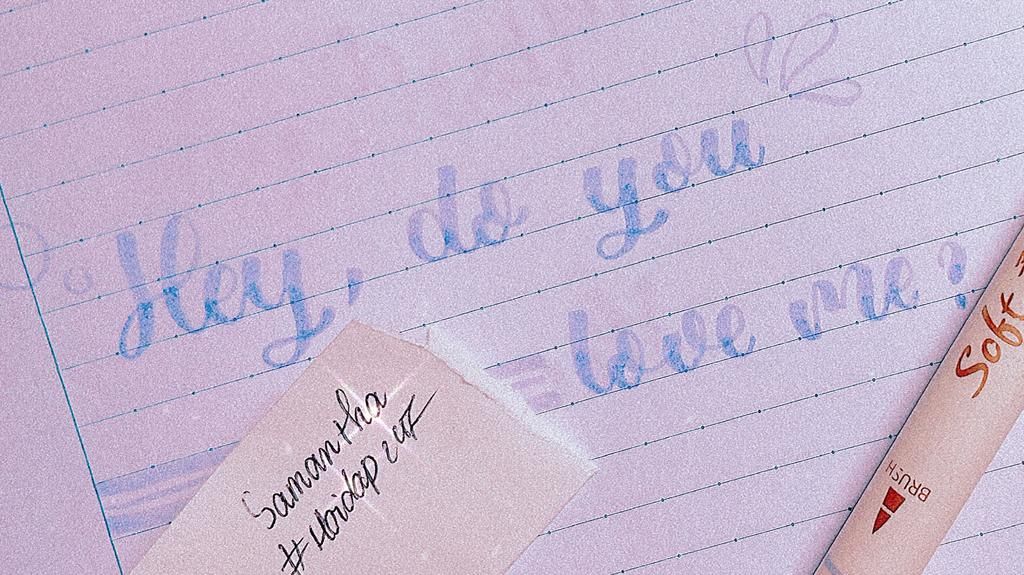 Hey, do you
love me?
Samantha
#Hoidap247
Soft
BRUSH